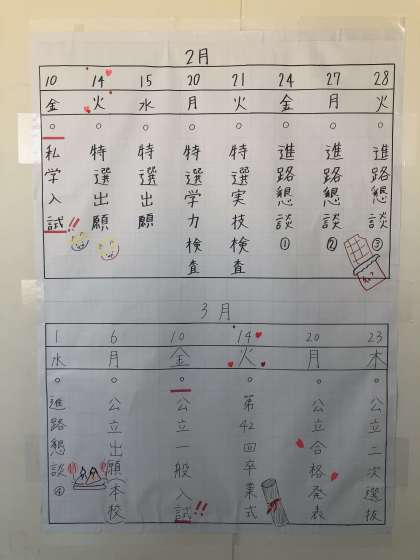 2月
10 14 15 20 21 24 27 28
金 火 水 月 火 金 月 火
○私学入試!!
○特選出願
○特選出願
○特選学力検査
○特選実技検査
○進路懇談①
○進路懇談②
○進路懇談③
3月
1 6 10 14 20 23
水 月 金 火 月 木
○進路懇談④
○公立出願(本校)
○公立一般入試!!
○第42回卒業式
○公立合格発表
○公立二次選抜